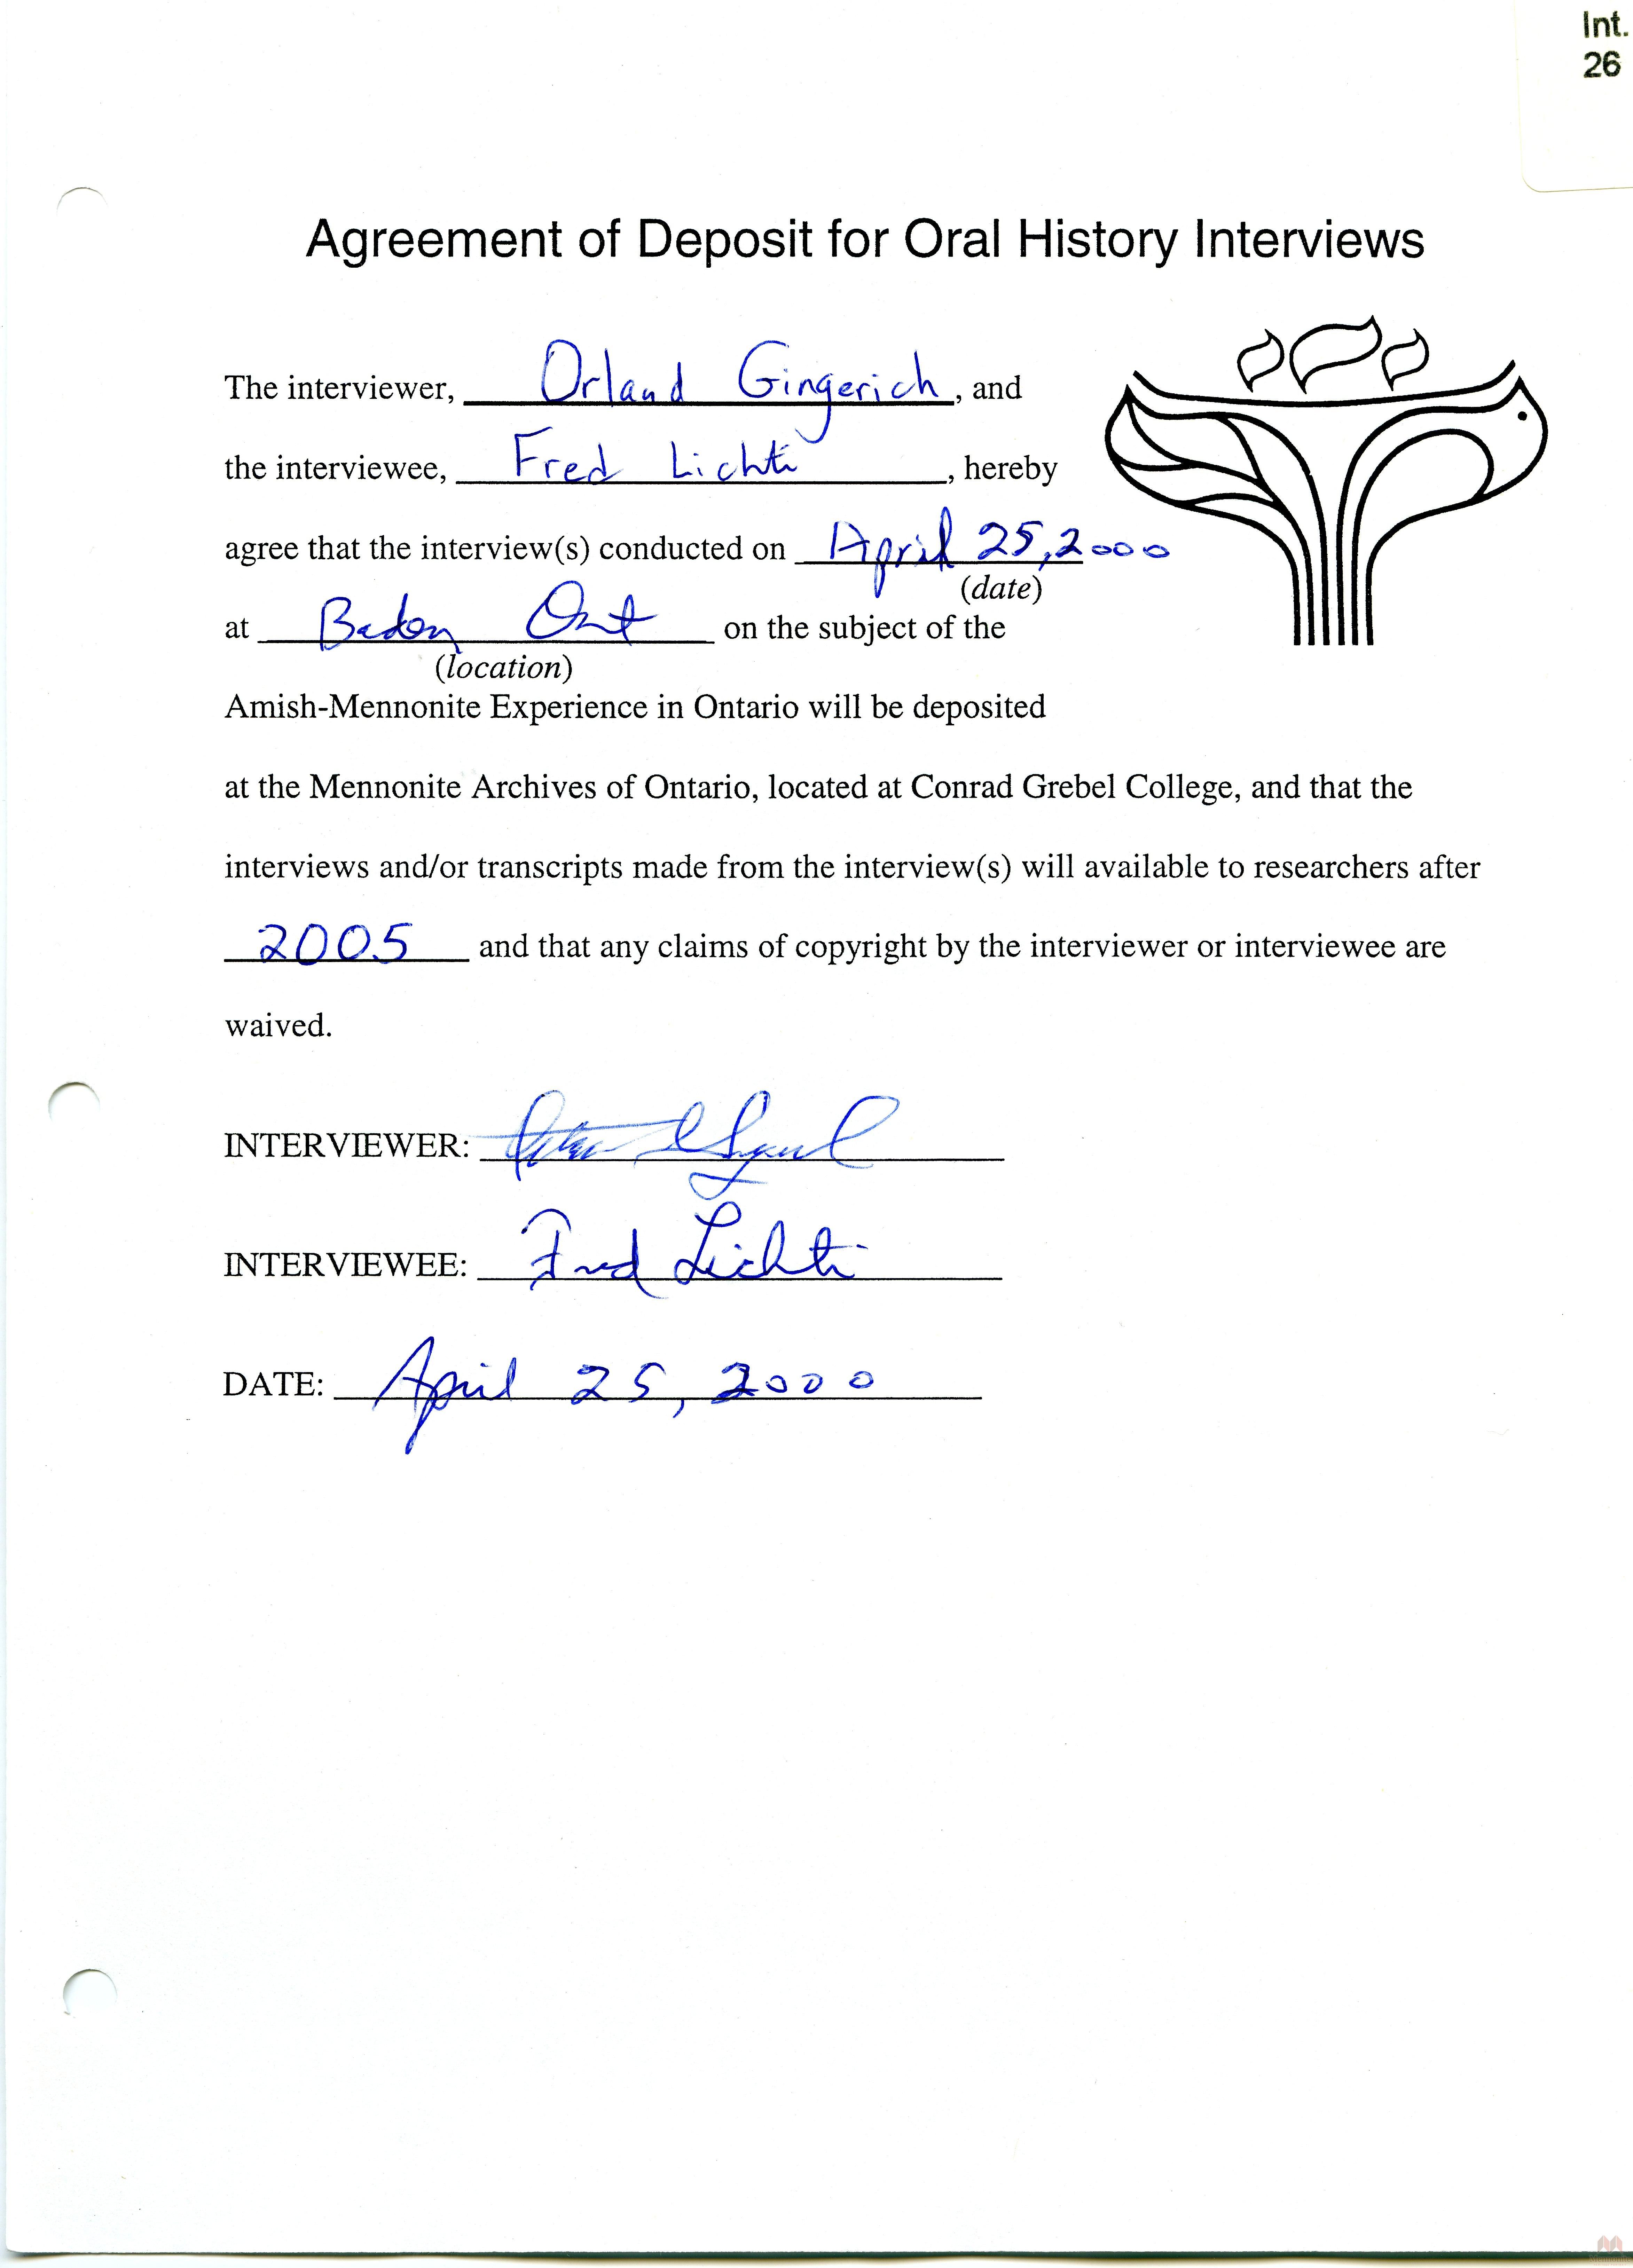 Int.
26
Agreement of Deposit for Oral History Interviews
The interviewer, Orland Gingerich, and
the interviewee, Fred Lichti, hereby
agree that the interview(s) conducted on April 25, 2000
(date)
at Baden Ont on the subject of the
(location)
Amish-Mennonite Experience in Ontario will be deposited
at the Mennonite Archives of Ontario, located at Conrad Grebel College, and that the
interviews and/or transcripts made from the interview(s) will available to researchers after
2005 and that any claims of copyright by the interviewer or interviewee are
waived.
INTERVIEWER:
INTERVIEWEE: Fred Lichti
DATE: April 25, 2000